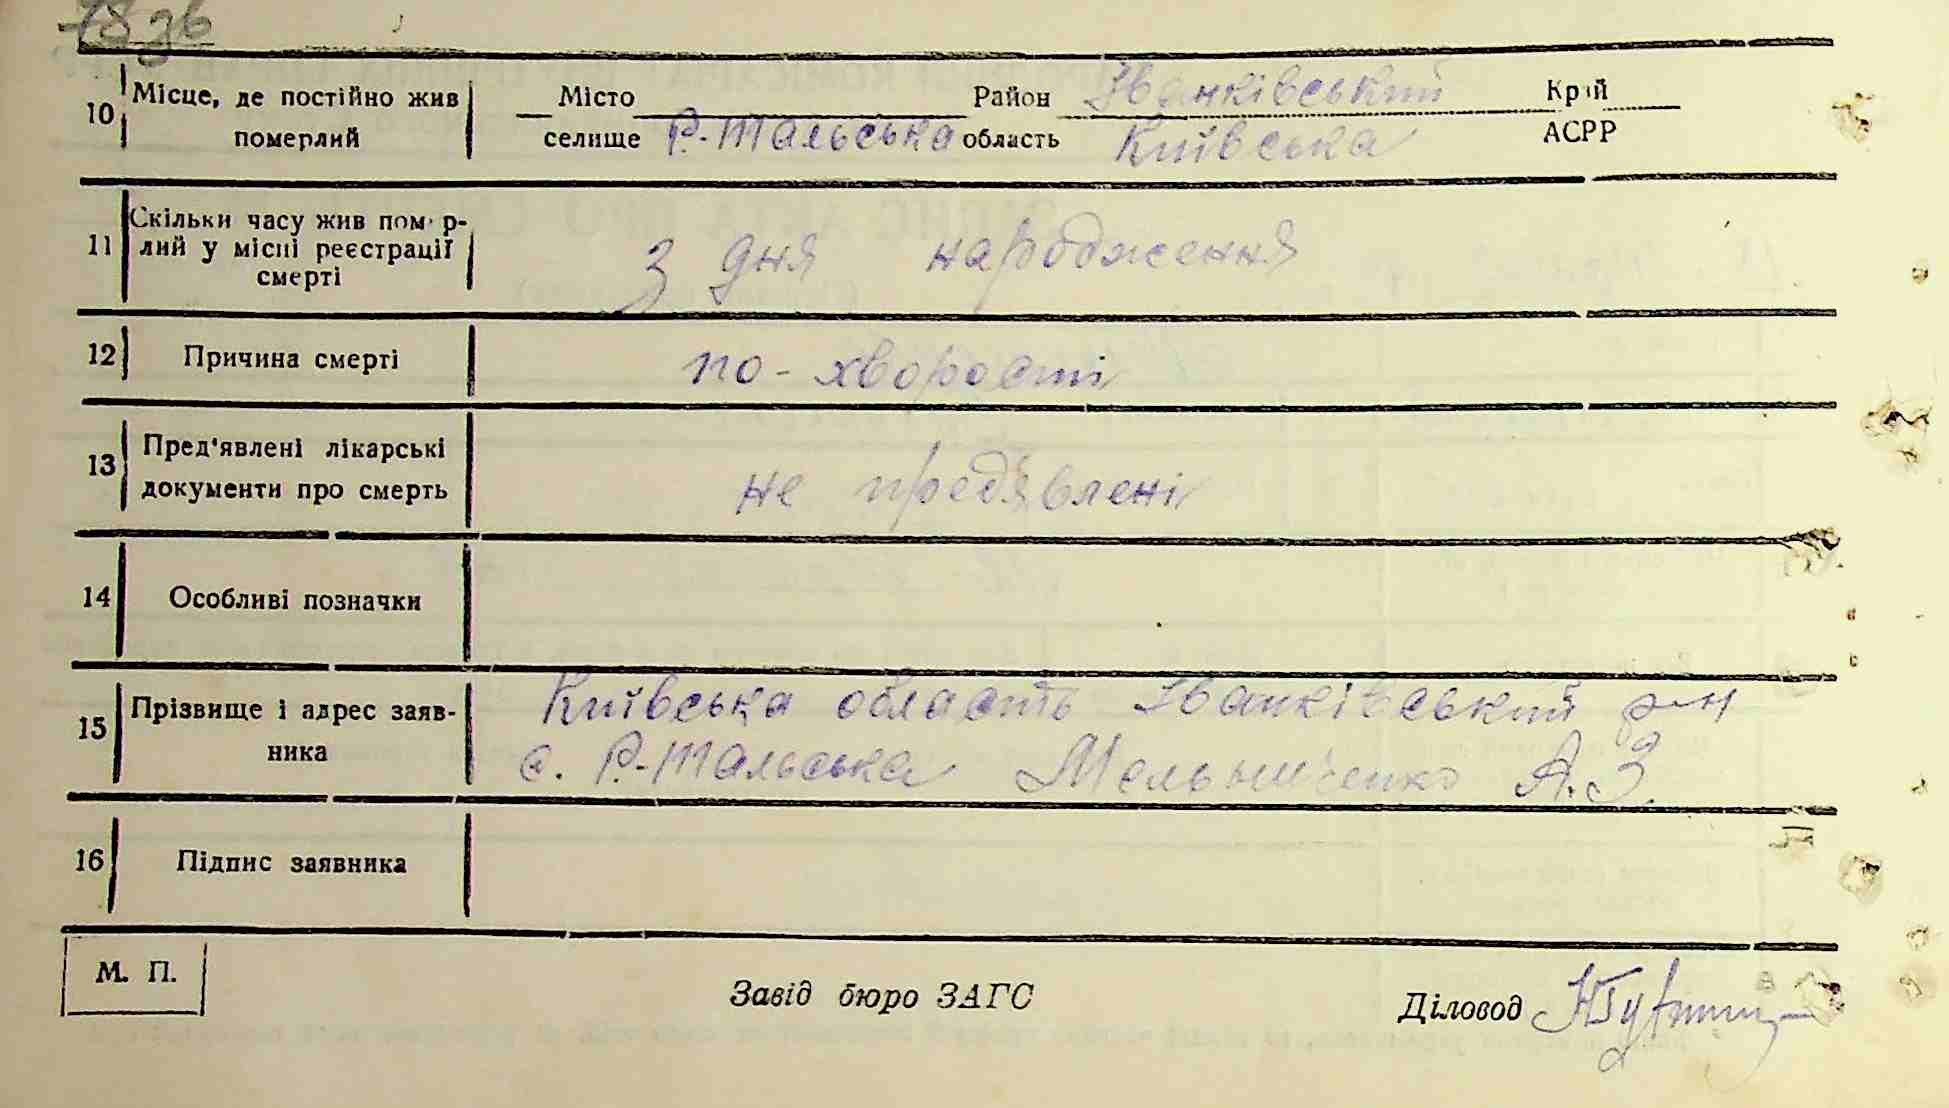 78 зв
10 Місце, де постійно жив померлий
Місто Район Іванківський Край
селище Р.-Тальська область Київська АСРР
11 Скільки часу жив померлий у місці реєстрації смерті
З дня народження
12 Причина смерті по-хворості
13 Пред'явлені лікарські документи про смерть
не предявлені
14 Особливі позначки
15 Прізвище і адрес заявника
Київська область Іванківський р-н
с. Р.-Тальська Мельниченко А.З.
16 Підпис заявника
М. П.
Завід бюро ЗАГС Діловод